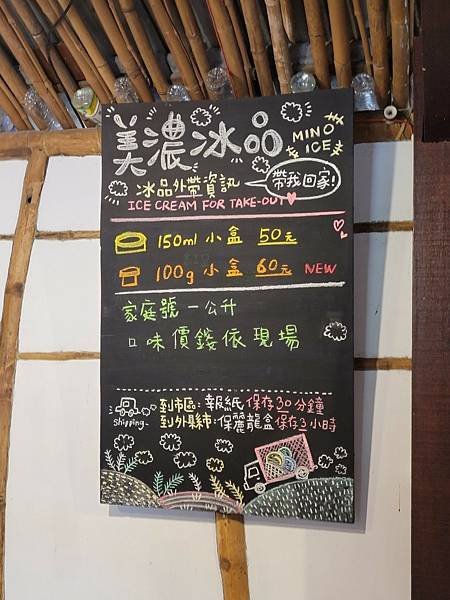 美濃冰品
MINO ICE
冰品外帶資訊
帶我回家!
ICE CREAM FOR TAKE-OUT
150ml 小盒 50元
100g 小盒 60元 NEW
家庭號 一公升
口味價錢依現場
到市區:報紙保存30分鐘
到外縣市:保麗龍盒保存3小時
Shipping~